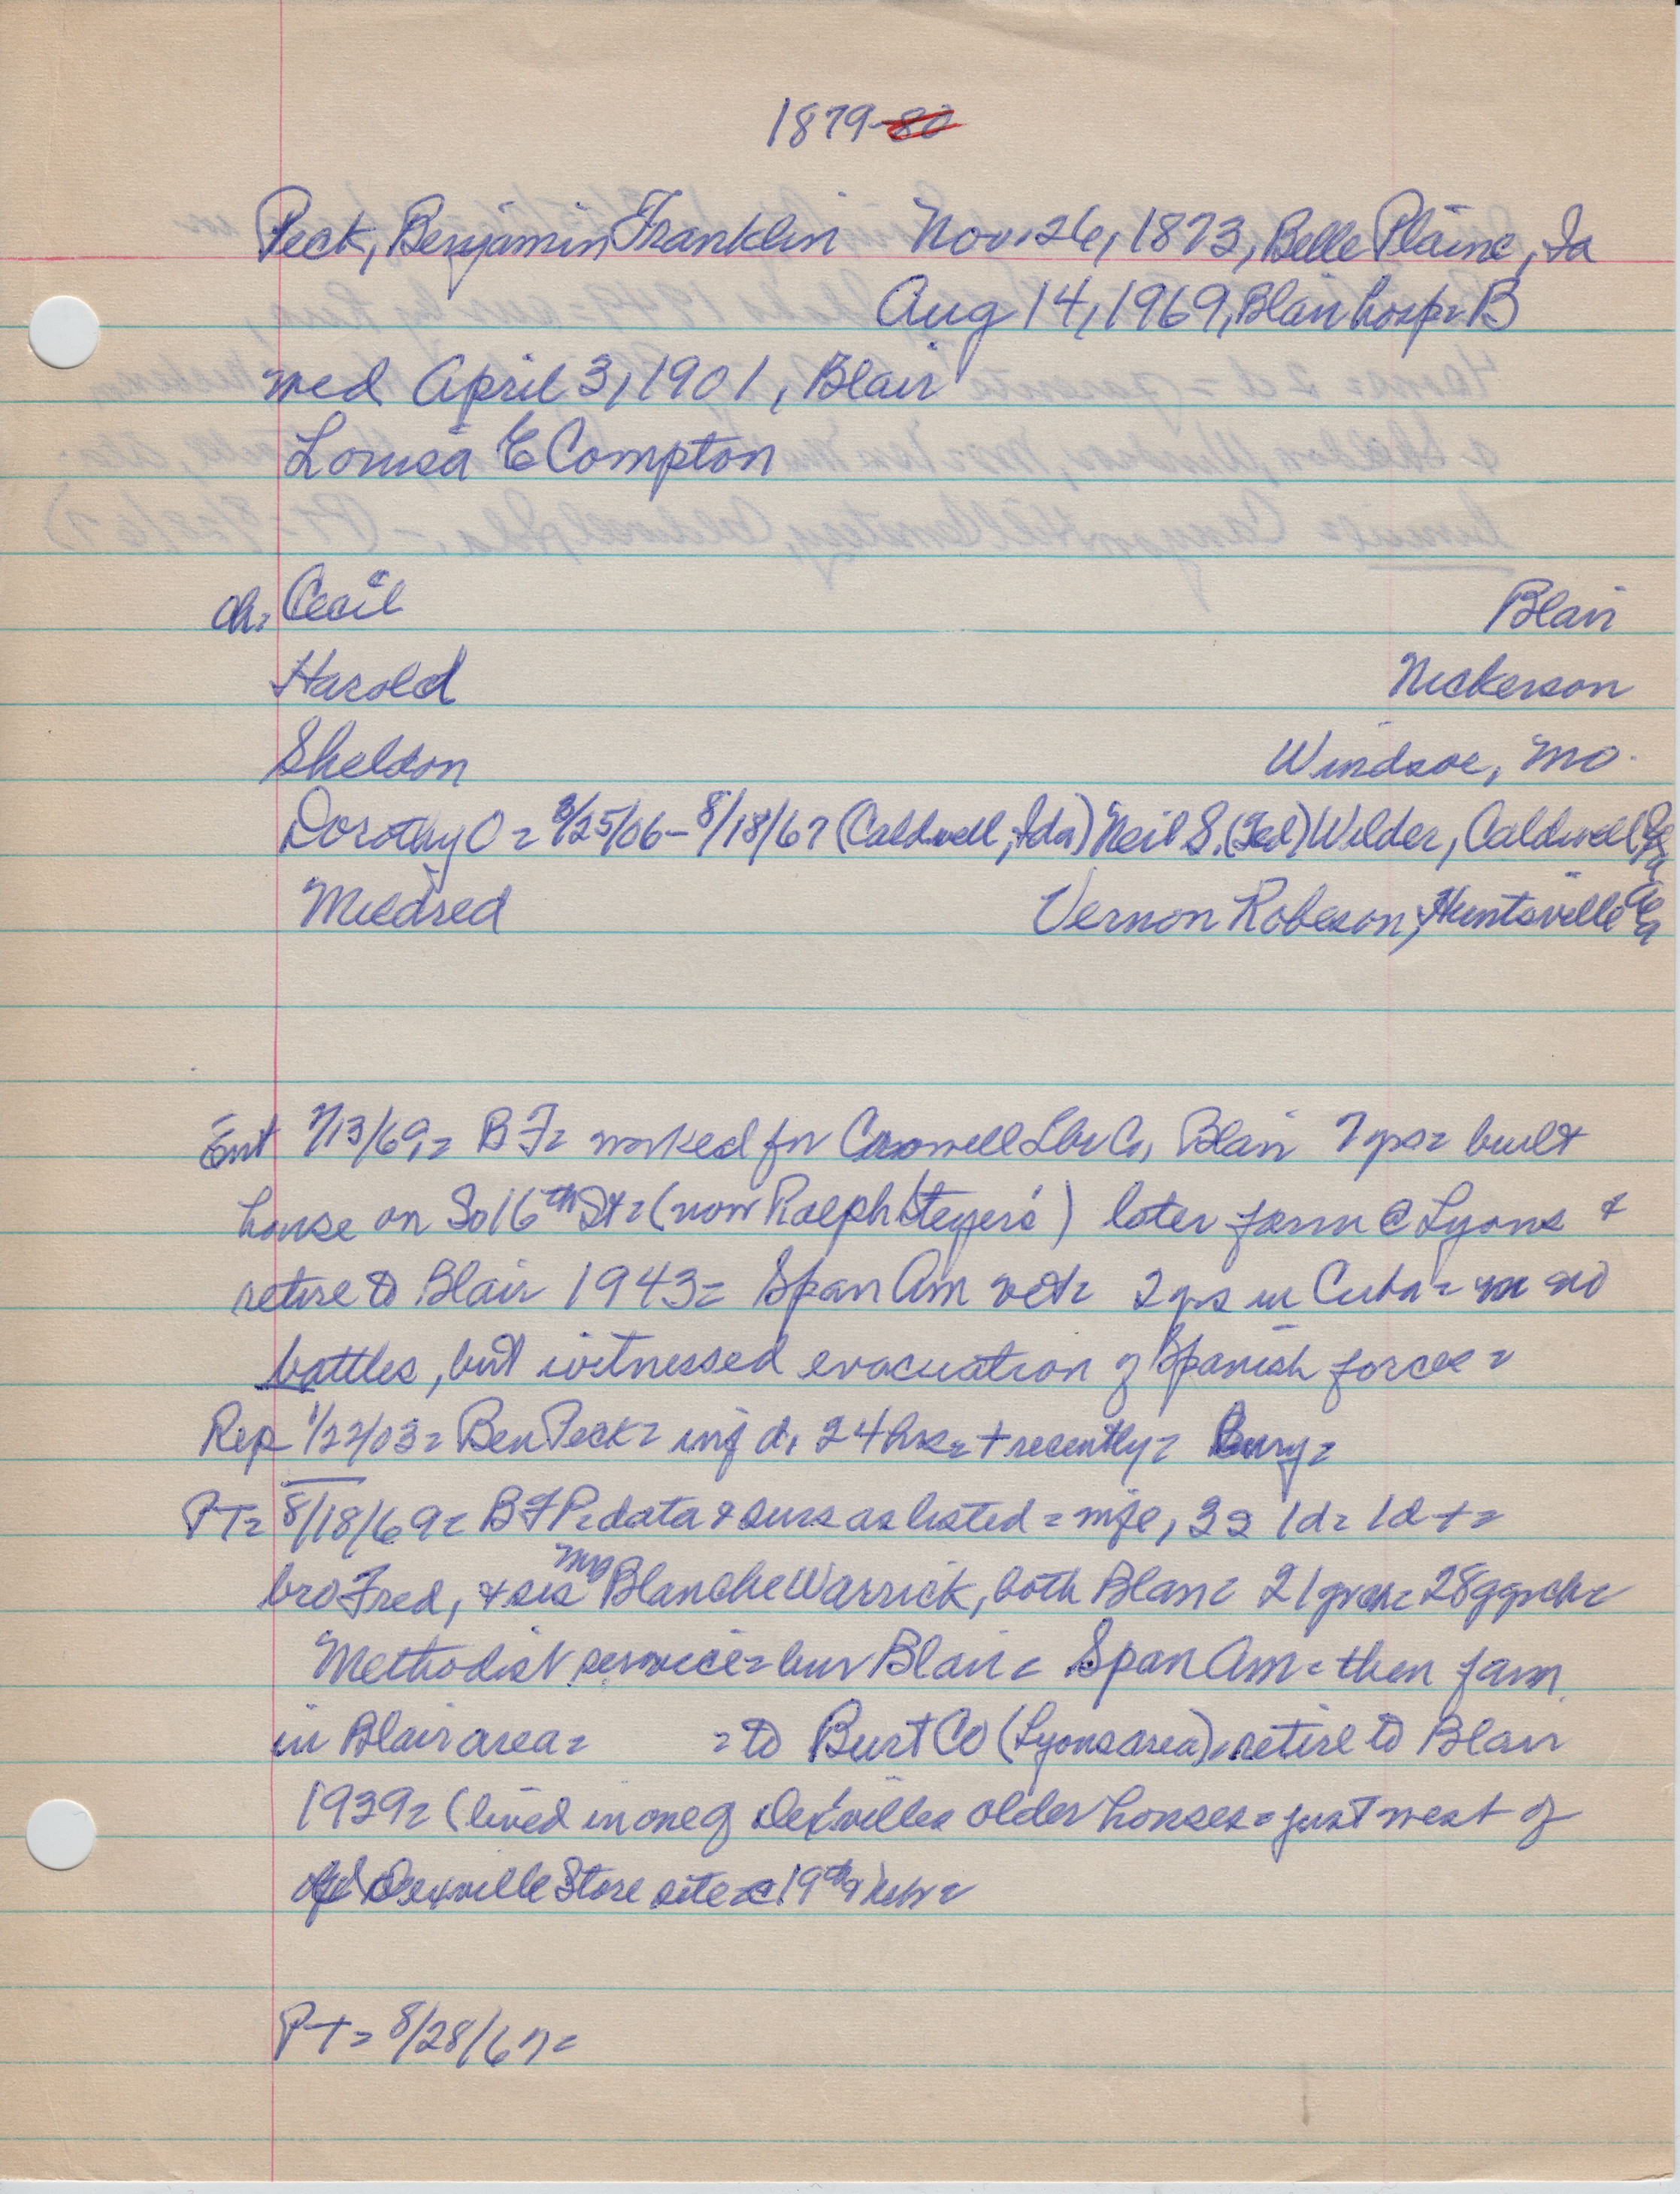 1879-80
Peck, Benjamin Franklin Nov. 26, 1873, Belle Plaine, Ia
Aug 14, 1969, Blair hosp = B
wed April 3, 1901, Blair
Louisa E Compton
ch = Cecil Blair
Harold Nickerson
Sheldon Windsor, Mo.
Dorothy O = 3/25/06 - 8/18/67 (Caldwell, Ida) Neil S. (Ted) Wilder, Caldwell
Mildred Vernon Robeson, Huntsville
Ent 7/13/69 = B F = worked for Crowell Lbr Co, Blair 7 yrs = built
house on So 16th St = (now Ralph Steyer's) later farm @ Lyons &
retire to Blair 1943 = Span Am vet = 2 yrs in Cuba = no
battles, but witnessed evacuation of Spanish forces =
Rep 1/22/03 = Ben Peck = inf d, 24 hrs = + recently = Bury =
PT = 8/18/69 = B F P = data & surs as listed = wife, 3 s 1 d = 1 d + =
bro Fred, & sis Mrs Blanche Warrick, both Blair = 21 grch = 28 ggrch =
Methodist service = bur Blair = Span Am = then farm
in Blair area = = to Burt Co (Lyons area) = retire to Blair
1939 = (lived in one of Dexville's older houses = just west of
Dexville Store site = 19th &
PT = 8/28/67 =